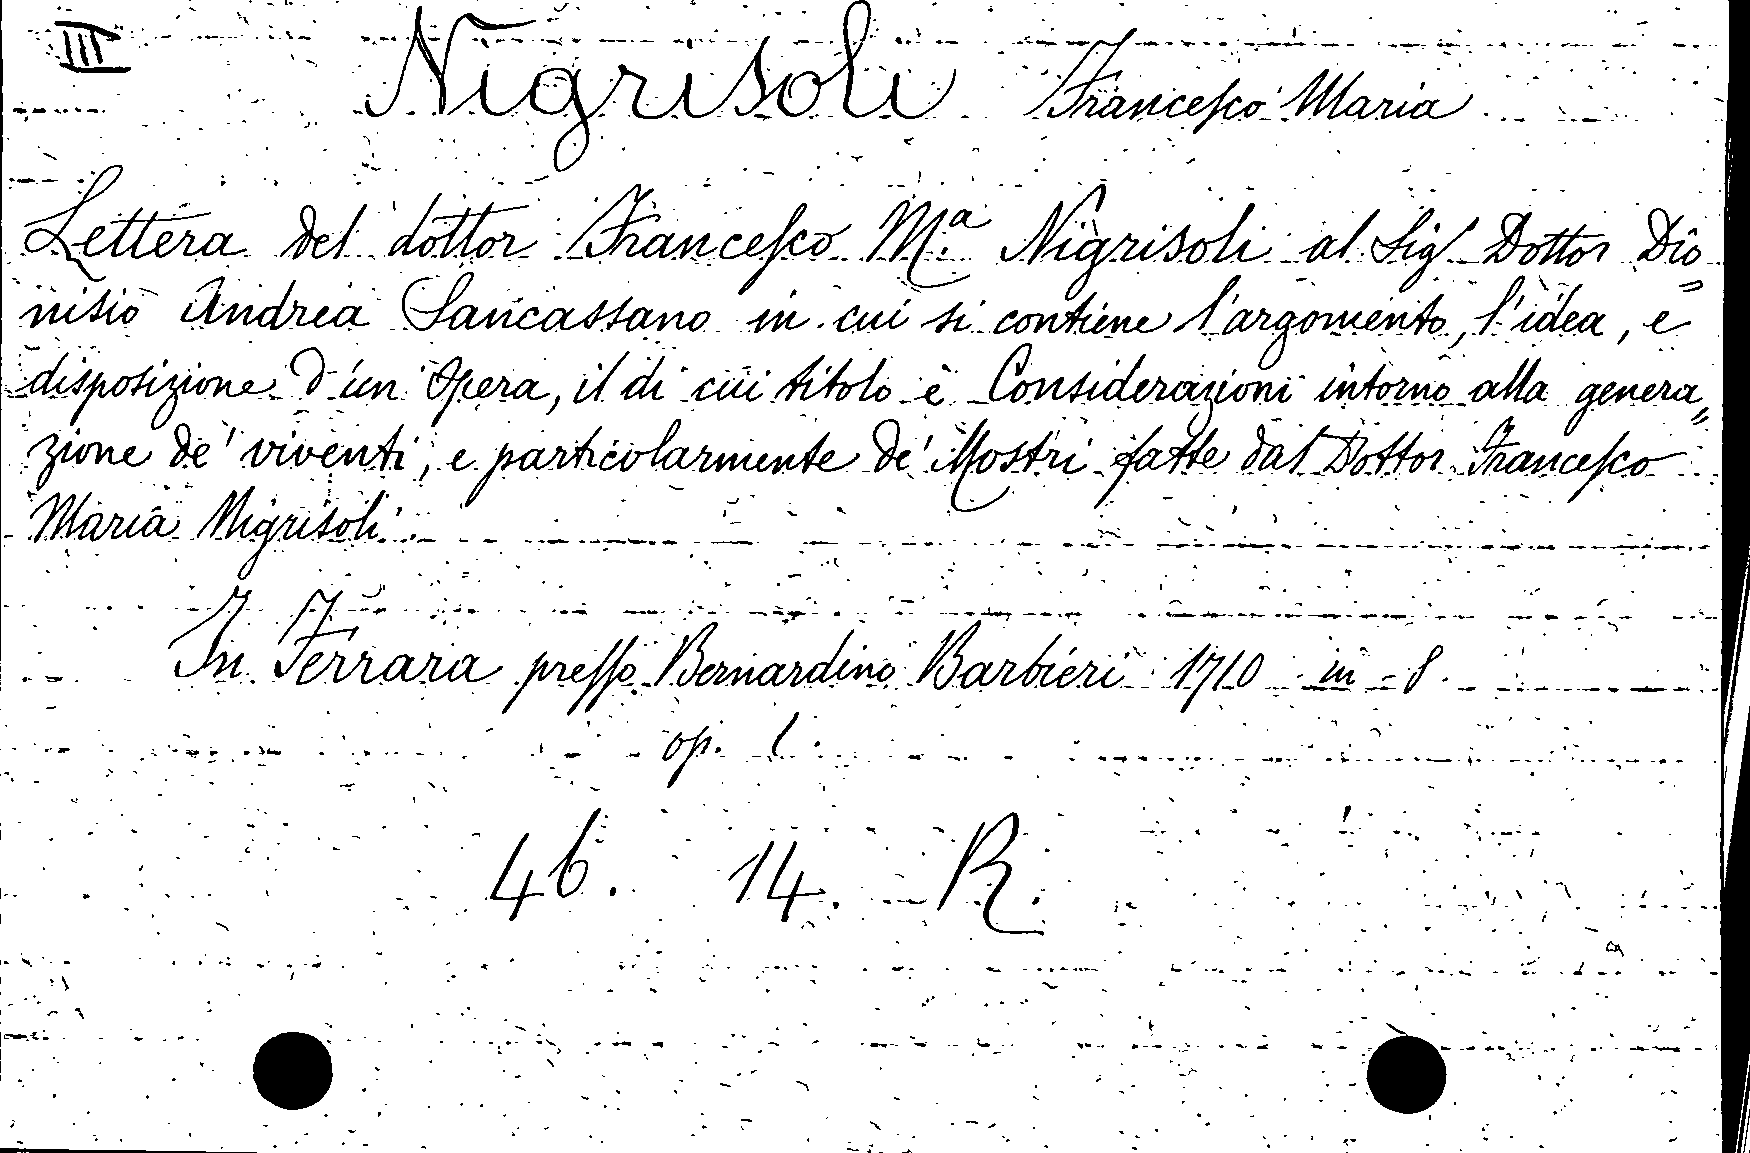 III
Nigrisoli Francesco Maria
Lettera del dottor Francesco M.ª Nigrisoli al Sig.r Dottor Dio„
nisio Andrea Sancassano in cui si contiene l'argomento, l'idea, e
disposizione d'un Opera, il di cui titolo è Considerazioni intorno alla genera„
zione de' viventi, e particolarmente de' Mostri fatte dal Dottor Francesco
Maria Nigrisoli.
In Ferrara presso Bernardino Barbieri 1710 in 8.
op. 1.
46. 14. R.